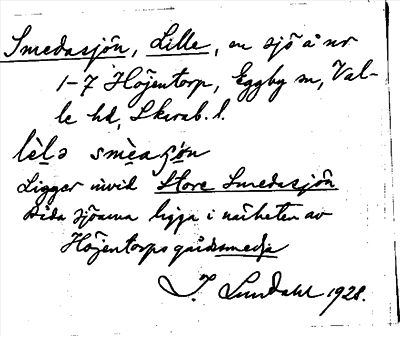 Smedasjön, Lille, en sjö å nr
1-7 Höjentorp, Eggby sn, Val-
le hd, Skarab. l.
lìlə smèaʂön
Ligger invid Store Smedasjön
Båda sjöarna ligga i närheten av
Höjentorps gårdsmedja
I. Lundahl 1928.